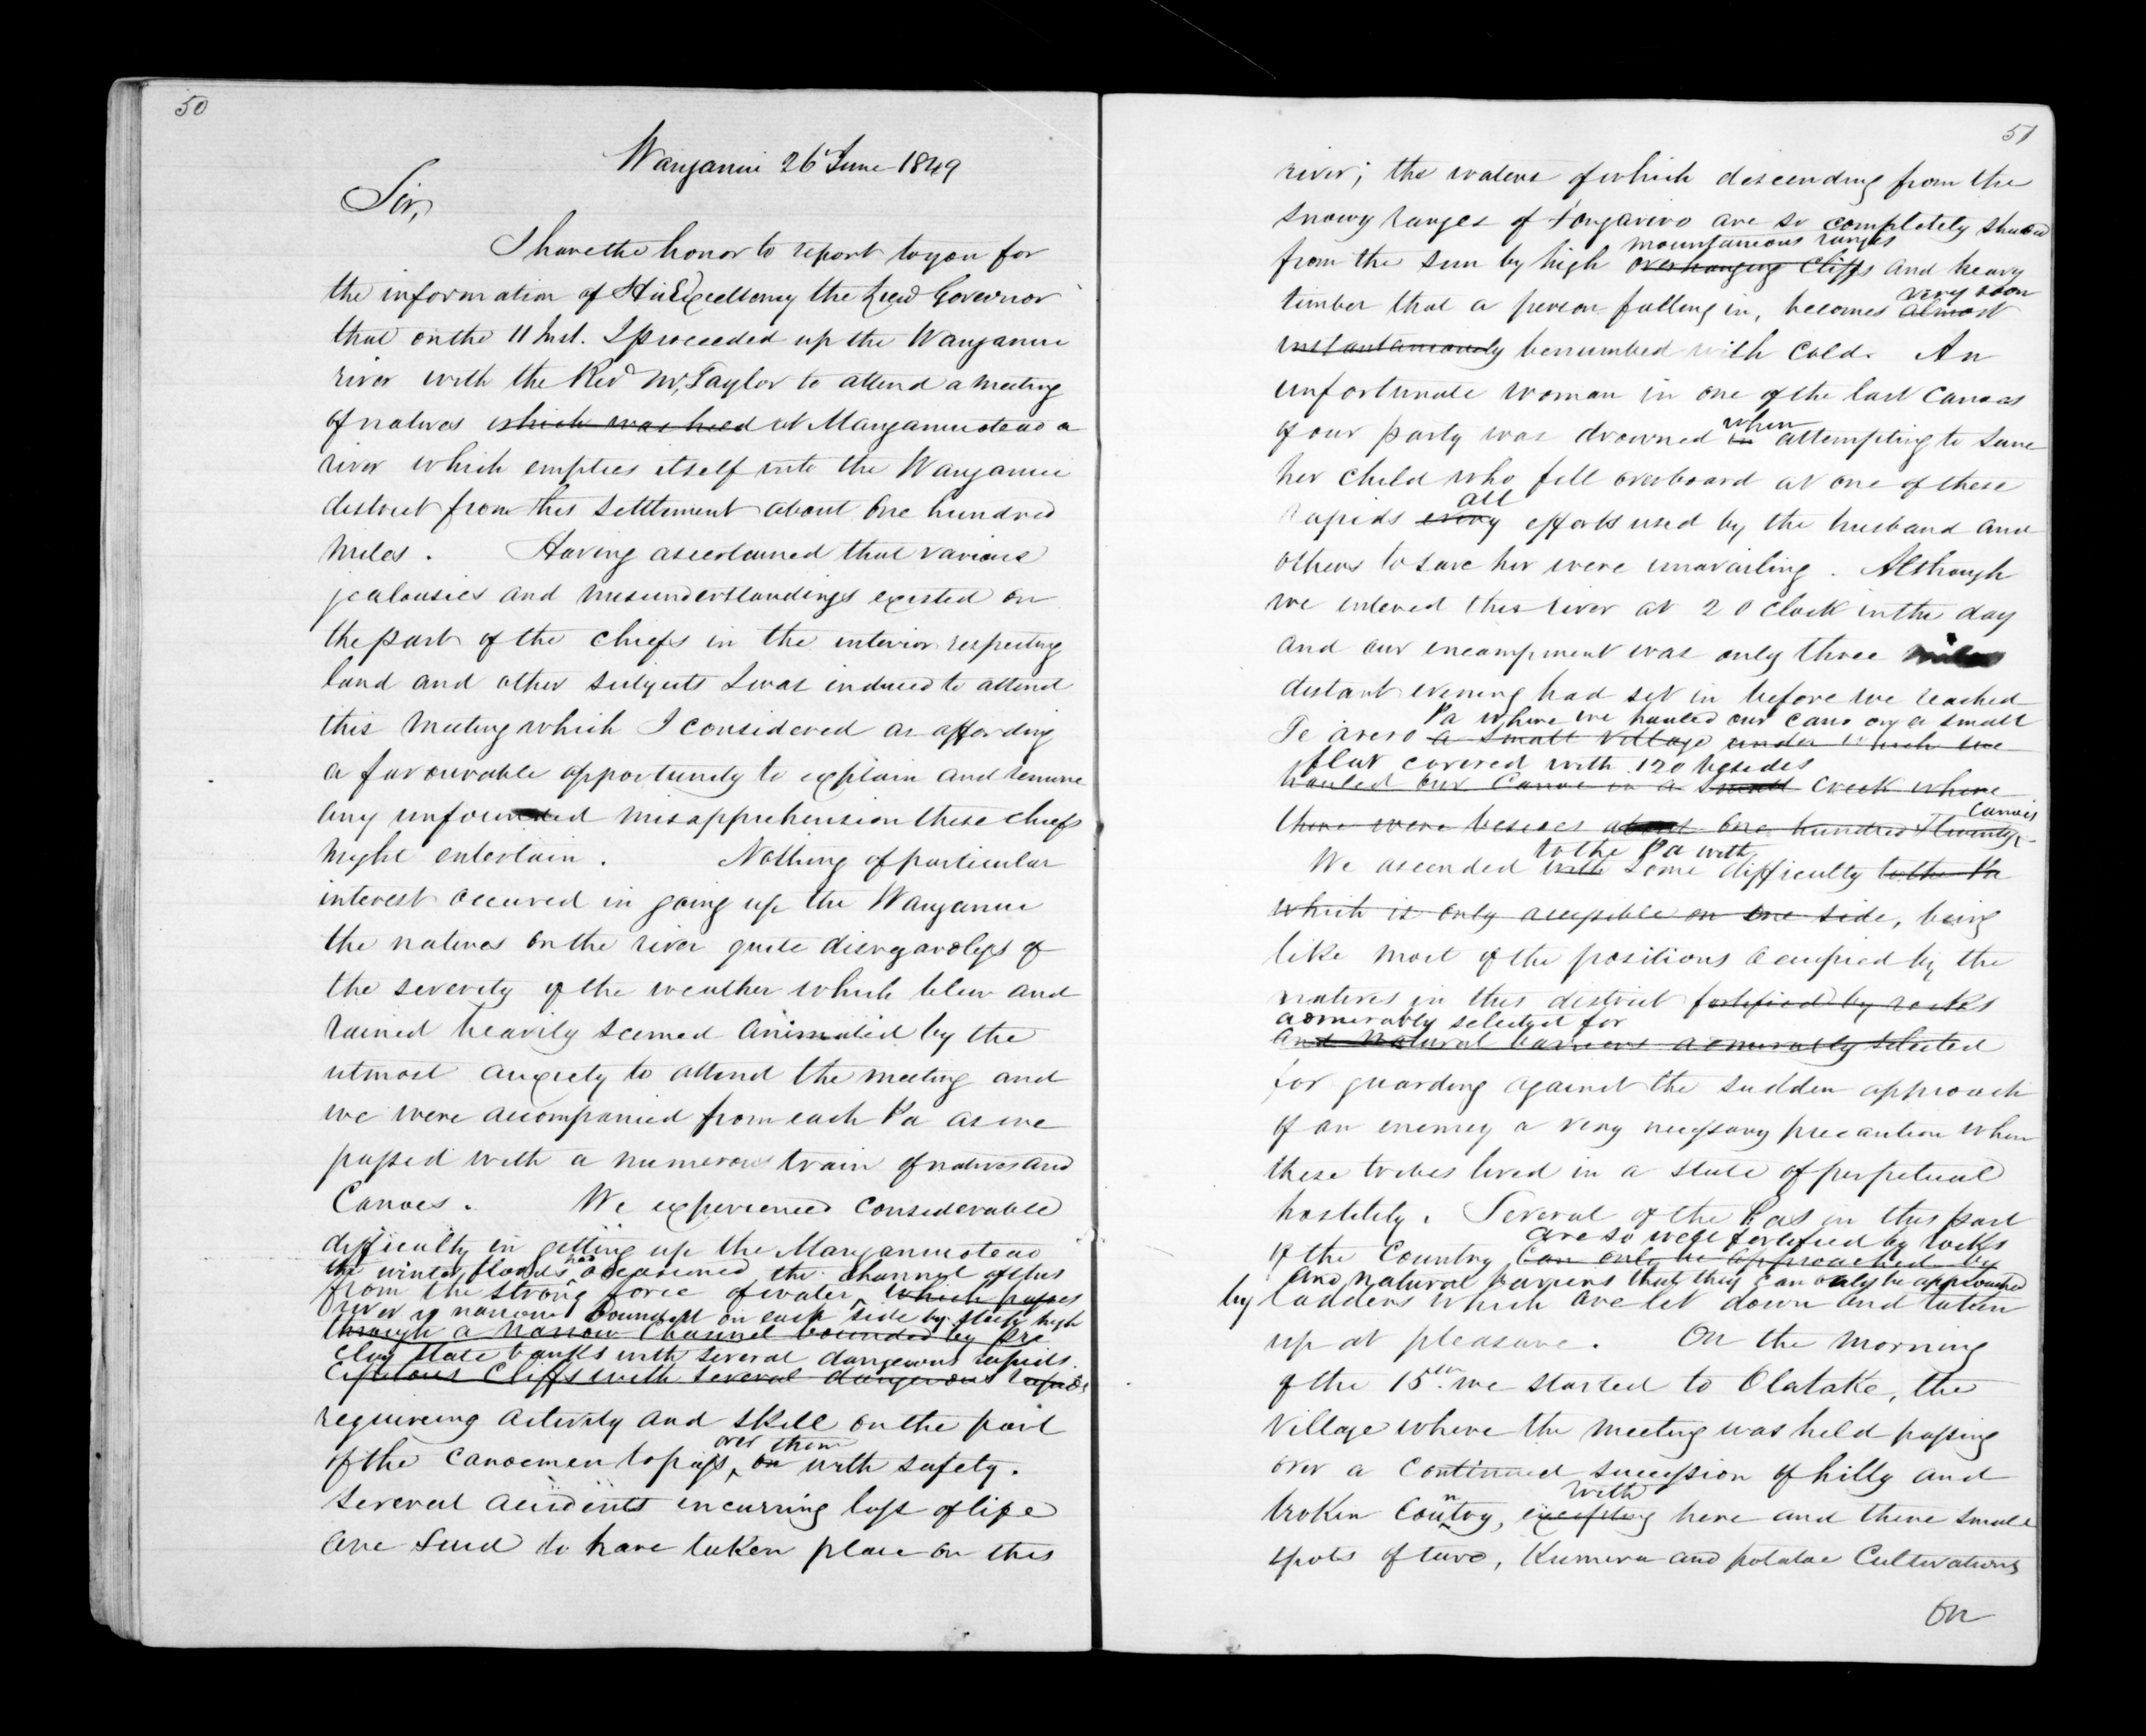 50
Wanganui 26 June 1849
Sir,
I have the honor to report to you for
the information of His Excellency the Lieut Governor
that on the 11 Inst. I proceeded up the Wanganui
river with the Revd Mr. Taylor to attend a meeting
of natives which was held at Manganuioteao a
river which empties itself into the Wanganui
distant from this settlement about one hundred
miles. Having ascertained that various
jealousies and misunderstandings existed on
the part of the chiefs in the interior respecting
land and other subjects I was induced to attend
this meeting which I considered as affording
a favourable opportunity to explain and remove
any unfounded misapprehension these chiefs
might entertain. Nothing of particular
interest occured in going up the Wanganui
the natives on the river quite disregardless of
the severity of the weather which blew and
rained heavily seemed animated by the
utmost anxiety to attend the meeting and
we were accompanied from each Pa as we
passed with a numerous train of natives and
Canoes. We experienced considerable
difficulty in getting up the Manganuioteao
the winter floods had occasioned the channel of this
from the strong force of water, which passes
river is narrow bounded on each side by steep high
through a narrow channel bounded by pre
clay slate banks with several dangerous rapids.
cipitous Cliffs with several dangerous rapids
requireing activity and skill on the part
of the canoemen to pass,
over them
on with safety.
Several accidents incurring loss of life
are said to have taken place on this
51
river; the waters of which descending from the
snowy ranges of Tongariro are so completely shaded
mountainous ranges
from the sun by high overhanging cliffs and heavy
very soon
timber that a person falling in, becomes almost
instantaneously benumbed with cold. An
unfortunate woman in one of the last canoes
when
of our party was drowned in attempting to save
her child who fell overboard at one of these
all
rapids every efforts used by the husband and
others to save her were unavailing. Although
we entered this river at 2 O clock in the day
and our encampment was only three miles
distant evening had set in before we reached
Pa where we hauled our cano on a small
Te arero a small village under which we
flat covered with 120 besides
hauled our Canoe in a small creek where
canoes
there were besides about one hundred & twenty
to the Pa with
We ascended with some difficulty to the Pa
which is only accessible on one side, being
like most of the positions occupied by the
natives in this district fortified by rocks
admirably selected for
and natural barriers admirably selected
for guarding against the sudden approach
of an enemy a very necessary precaution when
these tribes lived in a state of perpetual
hostility. Several of the Pas in this part
are so well fortified by rocks
of the Country can only be approached by
and natural barriers that they can only be approached
by ladders which are let down and taken
up at pleasure. On the morning
of the 15th we started to Otatake, the
village where the meeting was held passing
over a continued succession of hilly and
with
broken country, excepting here and there small
spots of taro, Kumera and potatoe Cultivations
On